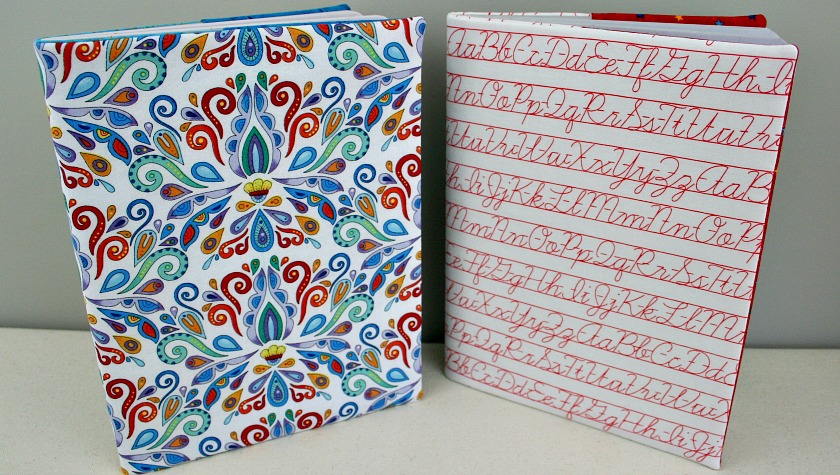 AaBbCcDdEeFfGgHhIi
NnOoPpQqRrSsTtUuVv
UuVvWwXxYyZzAaB
hIiJjKkLlMmNnOoPp
MmNnOoPpQqRrSsTt
EeFfGgHhIiJjKkLlMm
WwXxYyZzAaBbCcDd
PpQqRrSsTtUuVvWwX
BbCcDdEeFfGgHhIiJj